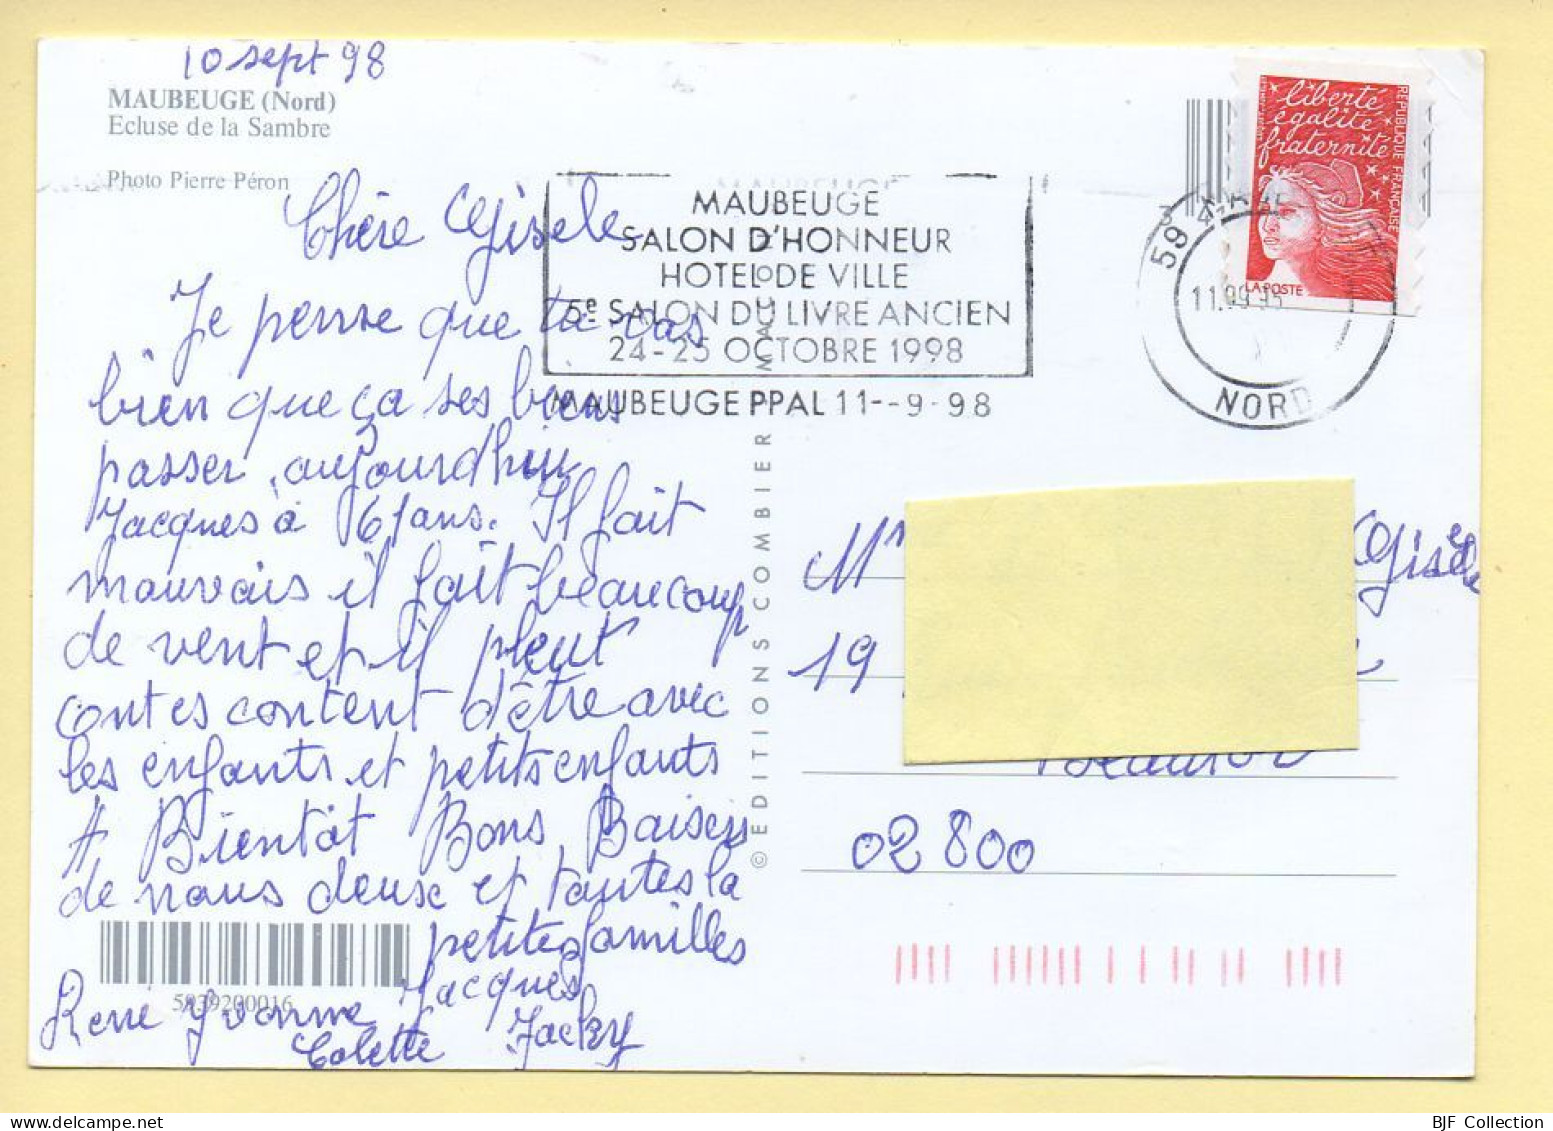 10 sept 98
MAUBEUGE (Nord)
Ecluse de la Sambre
Photo Pierre Péron
Chère Gisele
Je pense que tu vas
bien que ça ses biens
passer, aujourdhui
Jacques à 61 ans. Il fait
mauvais il fait beaucoup
de vent et il pleut
ont es content d'être avec
les enfants et petits enfants
A Bientôt Bons Baisers
de nous deux et toutes la
petites familles
Jacques
René Yvonne
Colette Jacky
5939200016
© EDITIONS COMBIER MACON
MAUBEUGE
SALON D'HONNEUR
HOTEL DE VILLE
5e SALON DU LIVRE ANCIEN
24-25 OCTOBRE 1998
MAUBEUGE PPAL 11--9-98
59
NORD
liberté
égalité
fraternité
REPUBLIQUE FRANÇAISE
LA POSTE
Gisele
19
02 800
BJF Collection